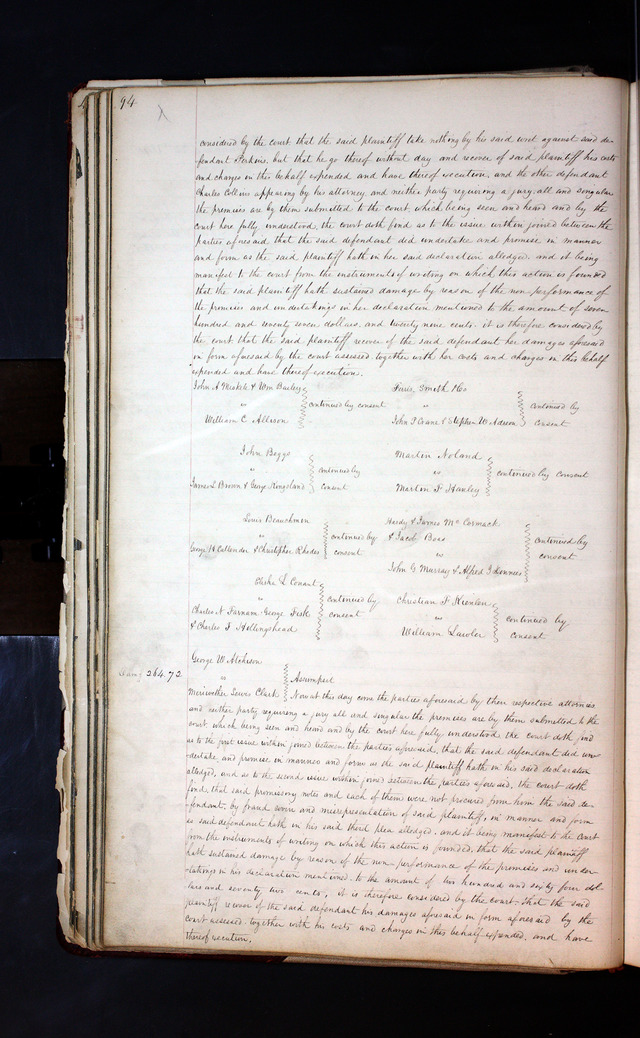 94
considered by the court that the said plaintiff take nothing by his said writ against said de-
fendant Perkins, but that he go thereof without day and recover of said plaintiff his costs
and charges in this behalf expended and have thereof execution, and the other defendant
Charles Collins appearing by his attorney and neither party requiring a jury all and singular
the premises are by them submitted to the court which being seen and heard and by the
court here fully understood, the court doth find as to the issue within joined between the
parties aforesaid, that the said defendant did undertake and promise in manner
and form as the said plaintiff hath in her said declaration alledged, and it being
manifest to the court from the instruments of writing on which this action is founded
that the said plaintiff hath sustained damage by reason of the non performance of
the promises and undertakings in her declaration mentioned to the amount of seven
hundred and seventy seven dollars, and twenty nine cents. it is therefore considered by
the court that the said plaintiff recover of the said defendant her damages aforesaid
in form aforesaid by the court assessed together with her costs and charges in this behalf
expended and have thereof execution.
John A Meskele & Wm Bailey
vs
William C Allison
continued by consent
Smith &co
vs
John P Crane & Stephen W Adreon
continued by
consent
John Beggs
vs
James L Brown & George Kingsland
continued by
consent
Martin Noland
vs
Martin F Hanley
continued by consent
Louis Beauchmin
vs
George H Callender & Christopher Rhodes
continued by
consent
Hardy & James Mc Cormack
& Jacob Boas
vs
John G Murray & Alfred G
continued by
consent
L Conart
vs
Charles N Farnam George Fisk
& Charles F Hollingshead
continued by
consent
Christian F Kienlen
vs
William Lawler
continued by
consent
George W Atchison
vs
Meriwether Lewis Clark
Assumpsit
264.72
Now at this day come the parties aforesaid by their respective attornies
and neither party requiring a jury all and singular the premises are by them submitted to the
court which being seen and heard and by the court here fully understood the court doth find
as to the first issue within joined between the parties aforesaid, that the said defendant did un-
dertake and promise in manner and form as the said plaintiff hath in his said declaration
alledged, and as to the second issue within joined between the parties aforesaid, the court doth
find, that said promissory notes and each of them were not procured from him the said de-
fendant, by fraud covin and misrepresentation of said plaintiff, in manner and form
as said defendant hath in his said third plea alledged. and it being manifest to the court
from the instruments of writing on which this action is founded, that the said plaintiff
hath sustained damage by reason of the non performance of the promises and under-
takings in his declaration mentioned to the amount of two hundred and sixty four dol-
lars and seventy two cents, it is therefore considered by the court that the said
plaintiff recover of the said defendant his damages aforesaid in form aforesaid by the
court assessed together with his costs and charges in this behalf expended, and have
thereof execution.